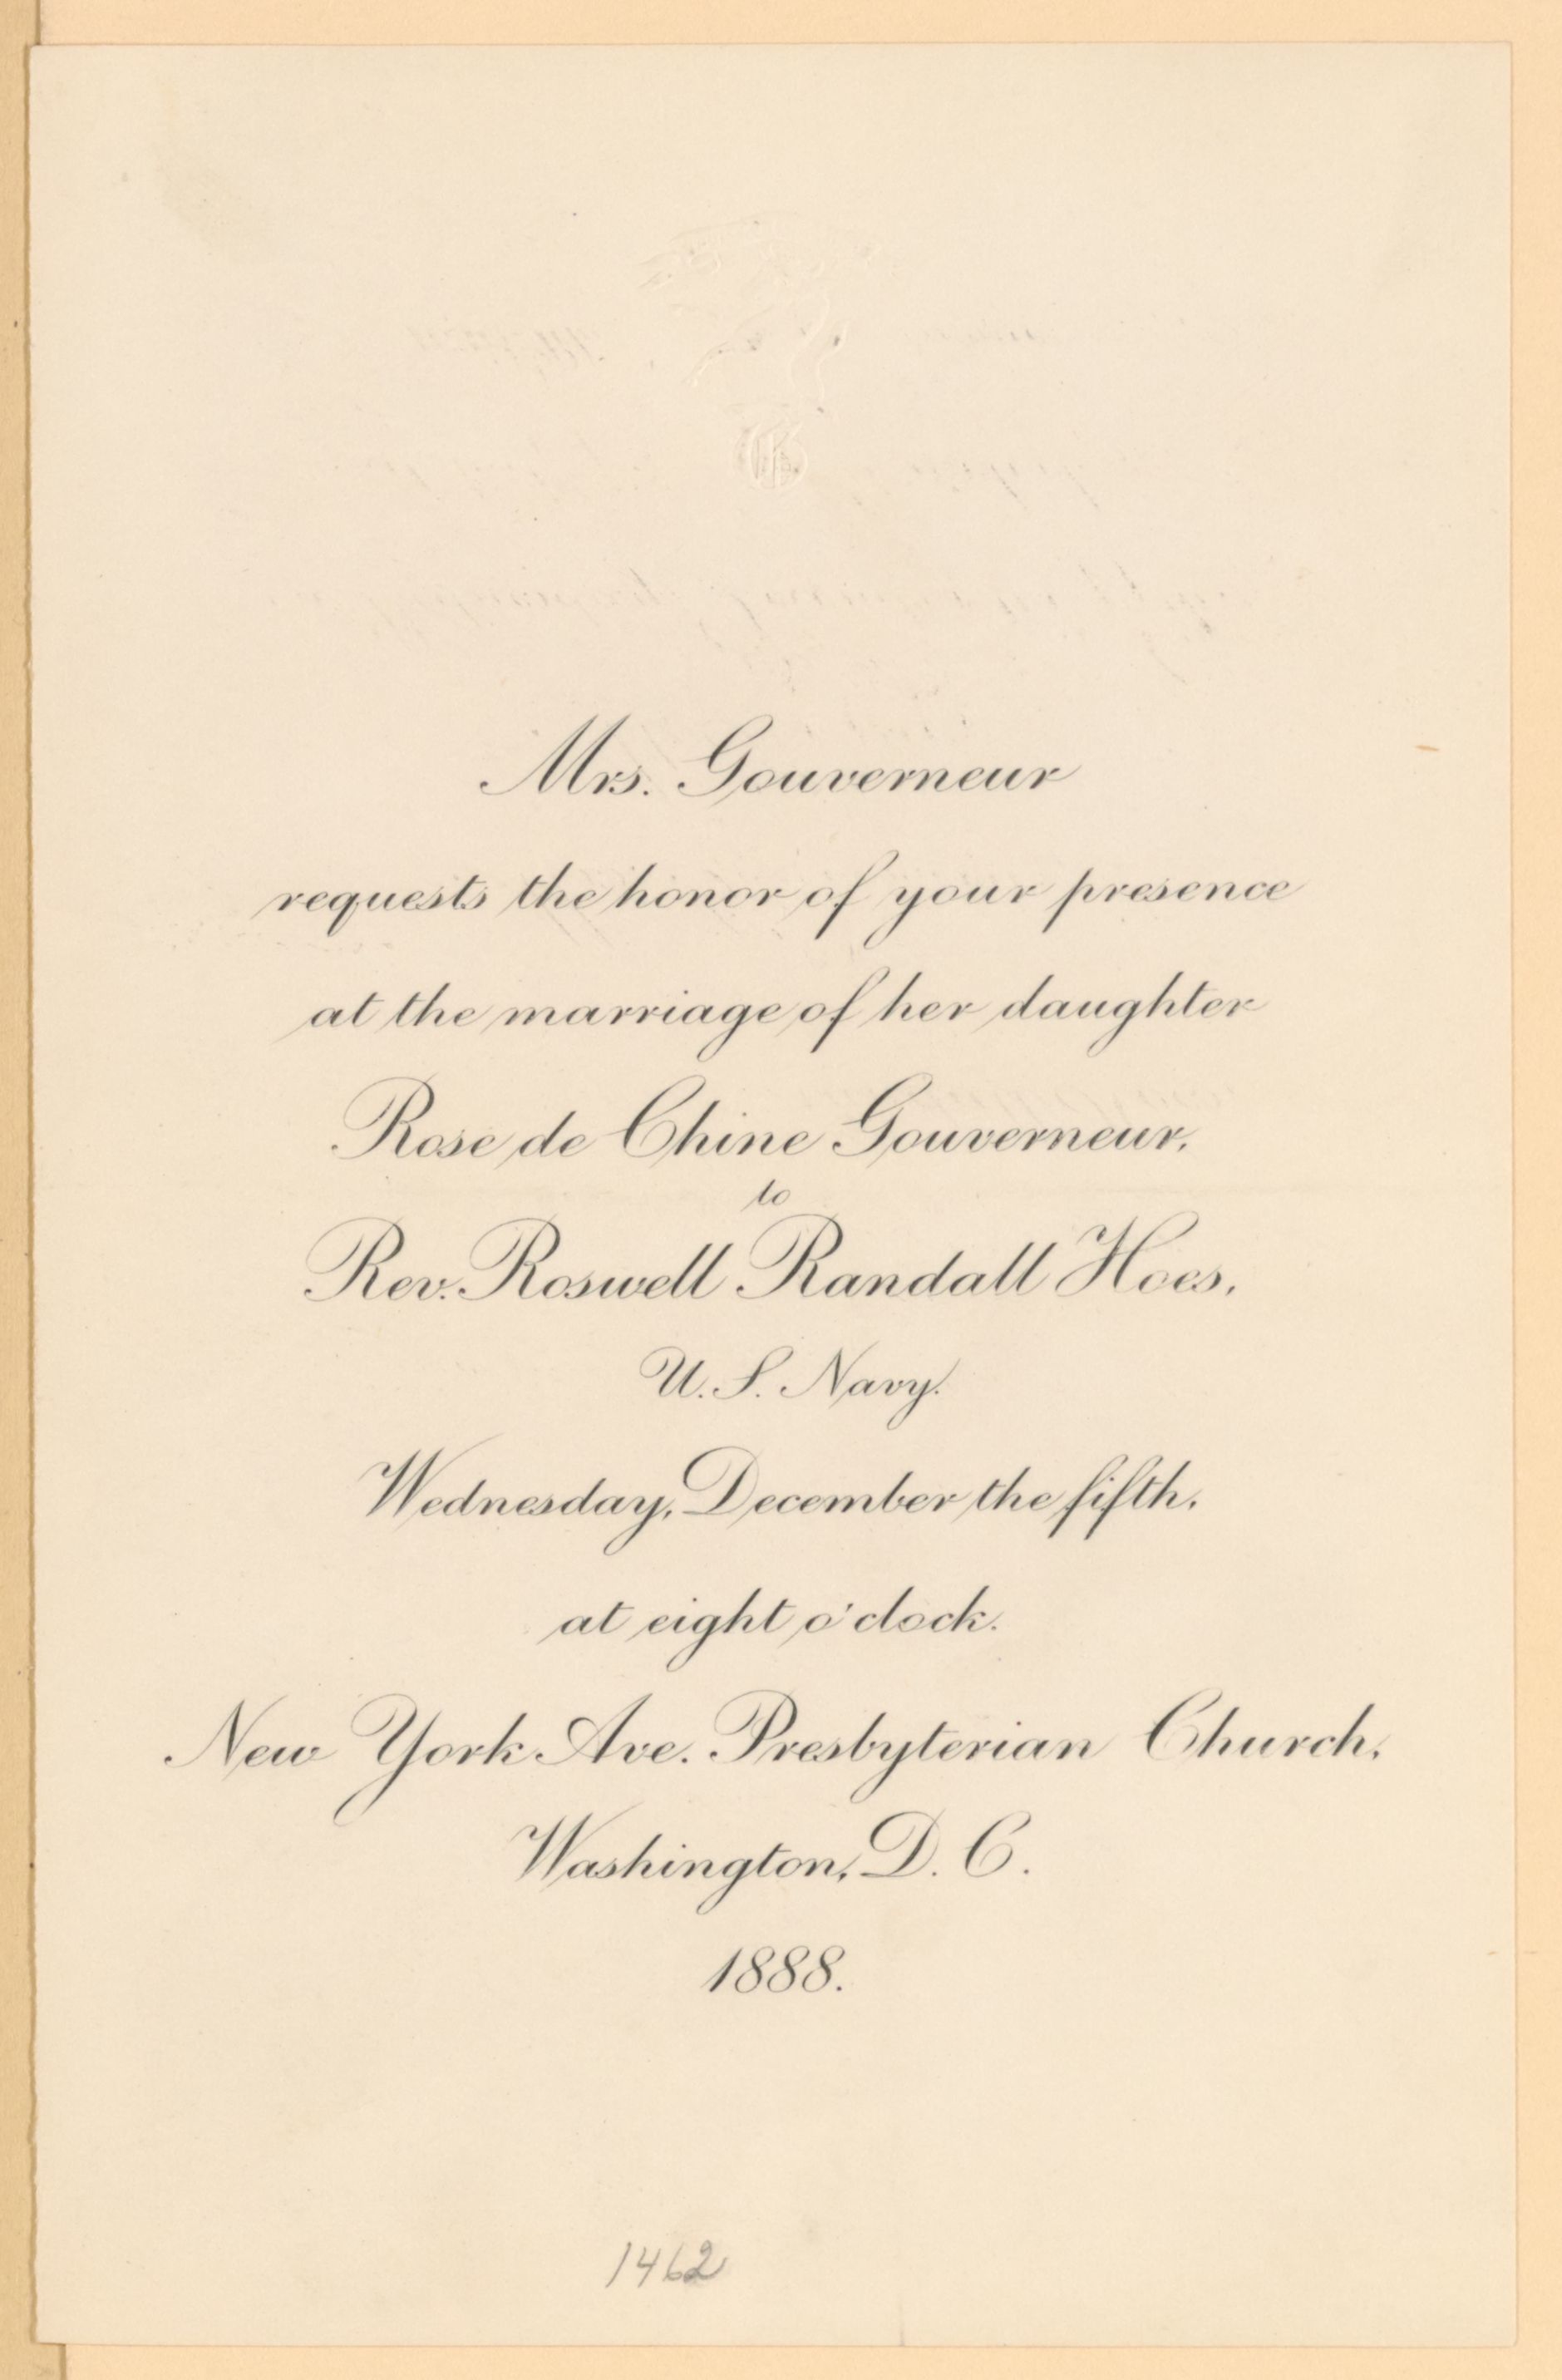 Mrs. Gouverneur
requests the honor of your presence
at the marriage of her daughter
Rose de Chine Gouverneur,
to
Rev. Roswell Randall Hoes,
U. S. Navy.
Wednesday, December the fifth,
at eight o'clock.
New York Ave. Presbyterian Church,
Washington, D. C.
1888.
1462